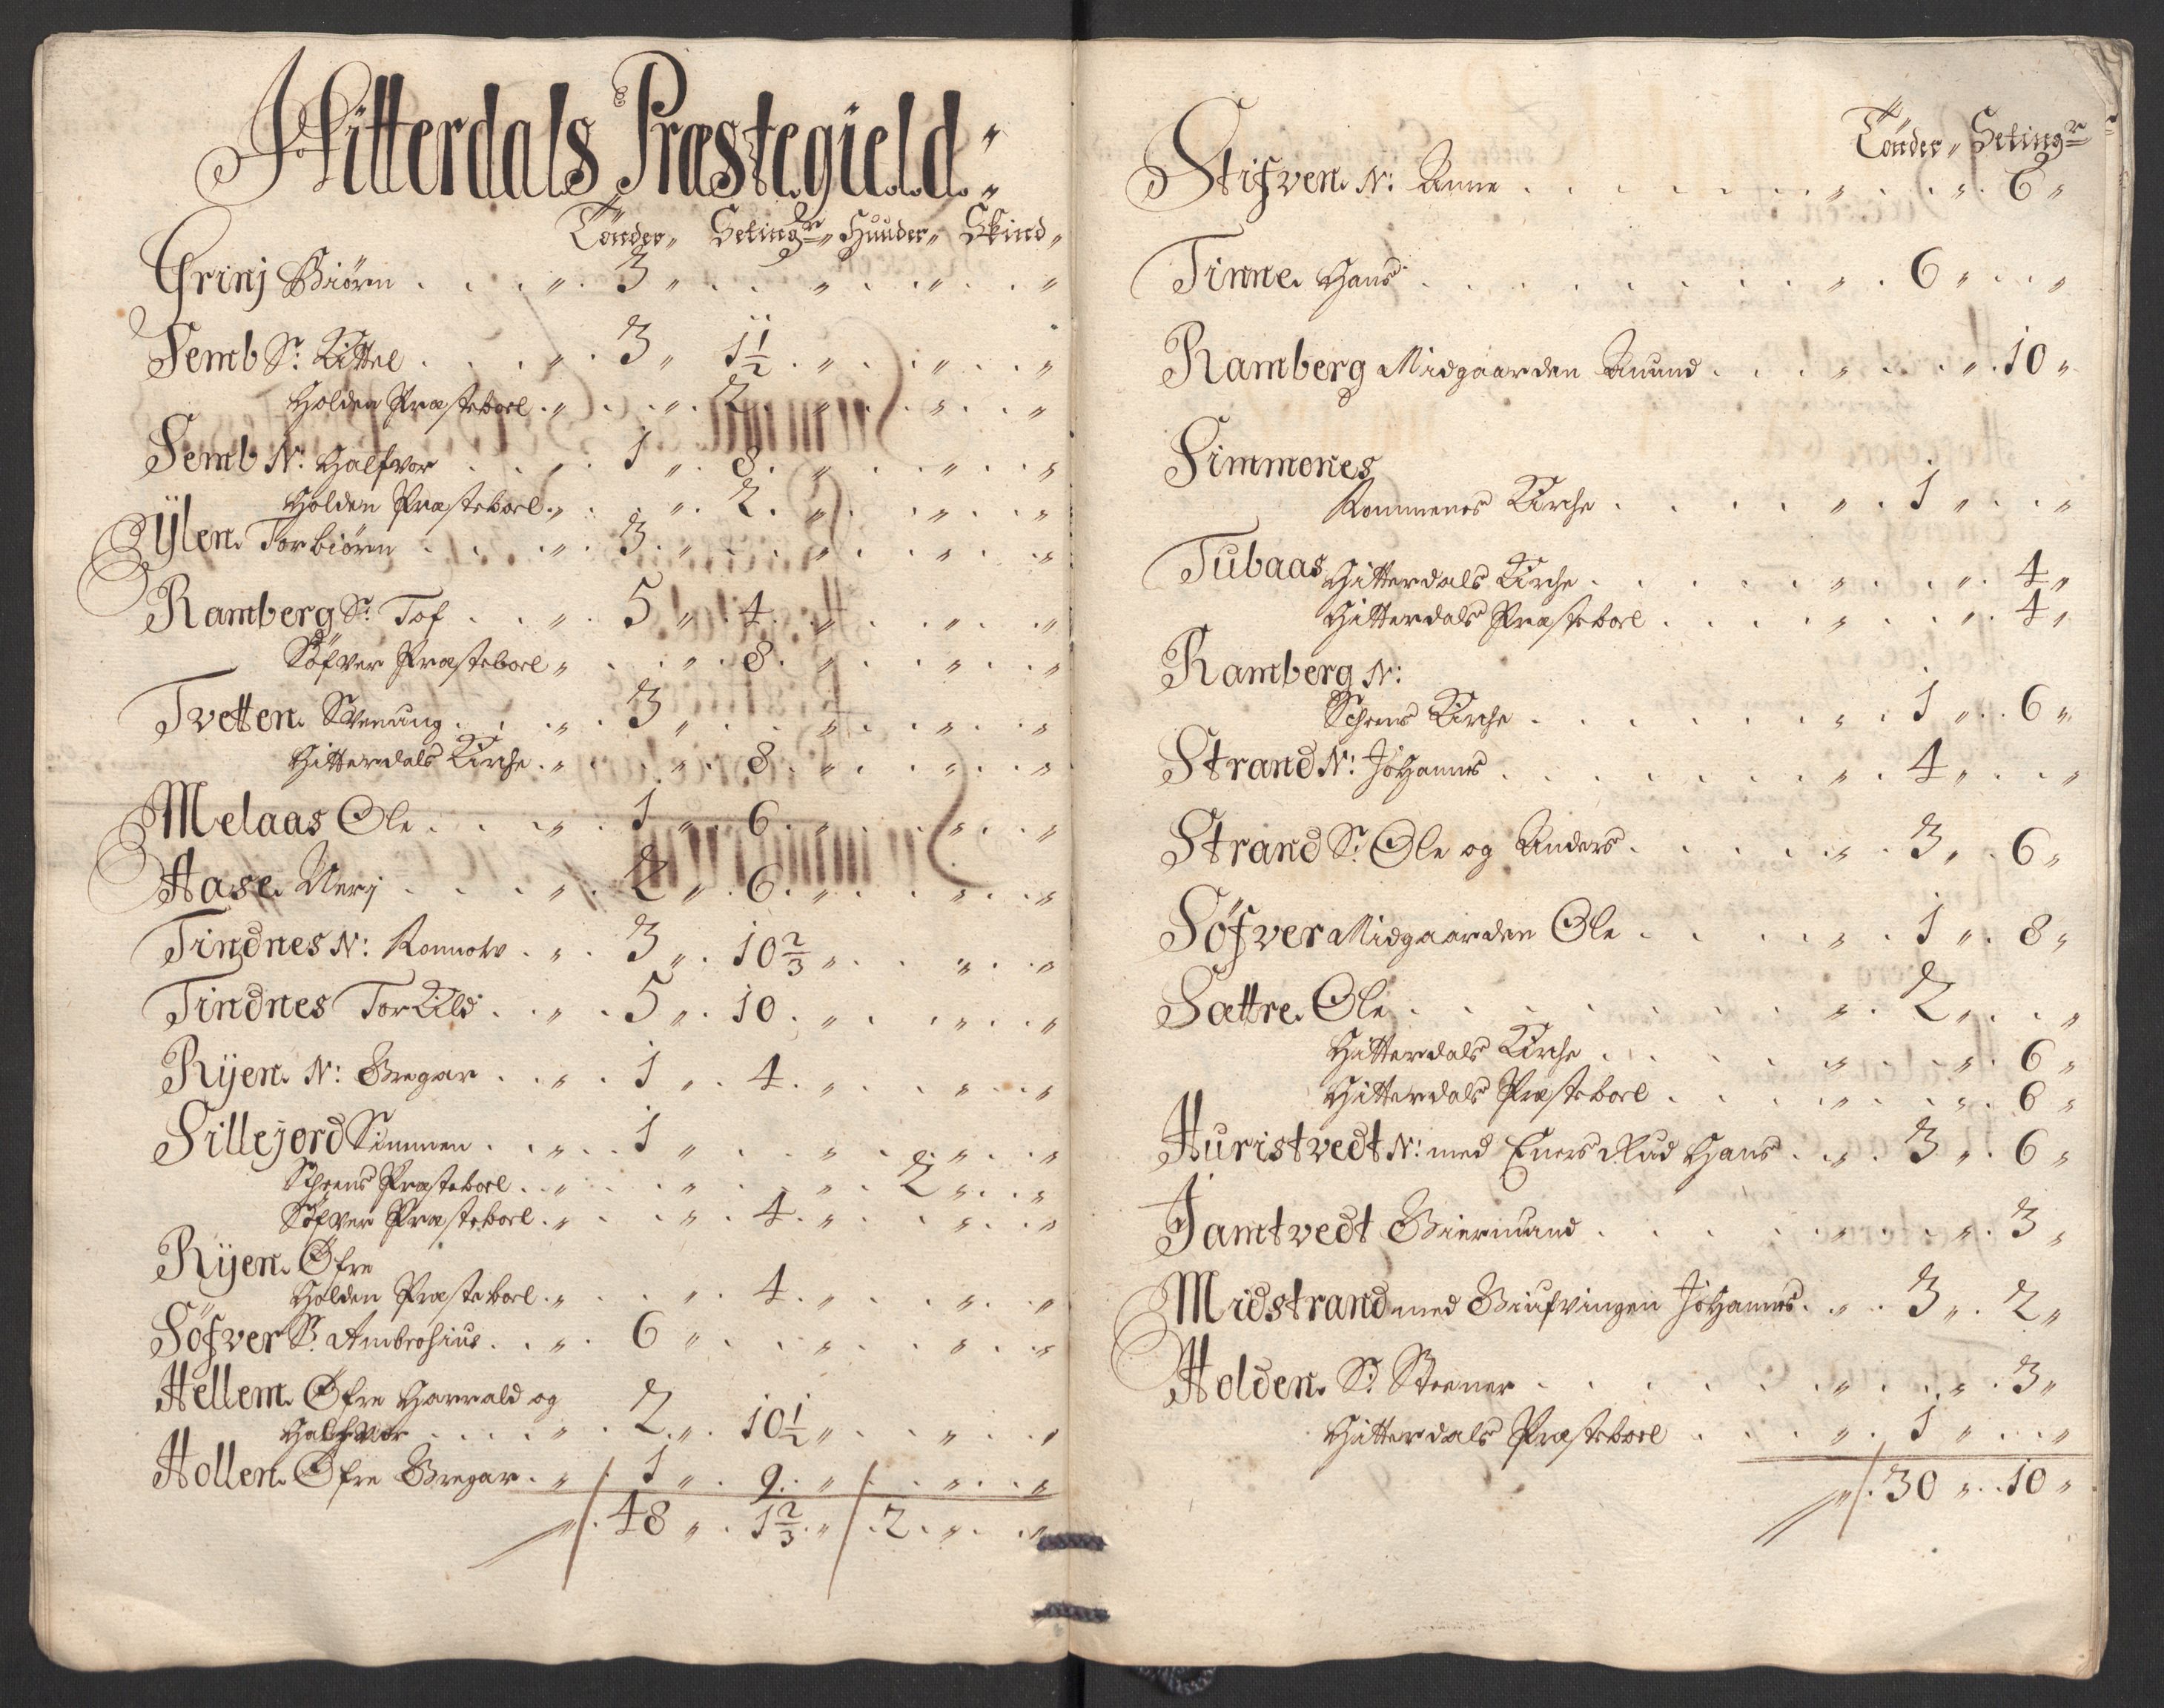 Hitterdals Præstegield
Tönder Setingr Huuder Skind
Grinj Biörn 3
Semb Sr: Kittel 3 1 1/2
Holden Præsteboel 2
Semb N: Halfvor 1 8
Holden Præsteboel 2
Ÿlen Torbiörn 3
Ramberg Sr: Tof 5 4
Söfver Præsteboel 8
Tvetten Svenung 3
Hitterdals Kirche 8
Melaas Ole 1 6
Hase Nerj 2 6
Tindnes N: Ronnow 3 10 2/3
Tindnes Torkild 5 10
Rÿen N: Gregar 1 4
Sillejord Simmen 1
Schens Præsteboel 2
Söfver Præsteboel 4
Rÿen Øfre
Holden Præsteboel 4
Söfver Sr: Ambrosius 6
Hellem Øfre Harrald og
Halfvor 2 10 1/2
Hollen Øfre Gregar 1 9
48 1 2/3 2
Tönder Setingr
Stifven N: Anne 6
Tinne Hans 6
Ramberg Midgaarden Anund 10
Simmones
Rommenes Kirche 1
Tubaas Hitterdals Kirche 4
Hitterdals Præsteboel 4
Ramberg N:
Schens Kirche 1 6
Strand N: Johannes 4
Strand Sr: Ole og Anders 3 6
Söfver Midgaarden Ole 1 8
Sættre Ole 2
Hitterdals Kirche 6
Hitterdals Præsteboel 6
Huristvedt N: med Eners Rud Hans 3 6
Jamtvedt Giermund 3
Midstrand med Biufvingen Johannes 3 2
Holden Sr: Steener 3
Hitterdals Præsteboel 1
30 10